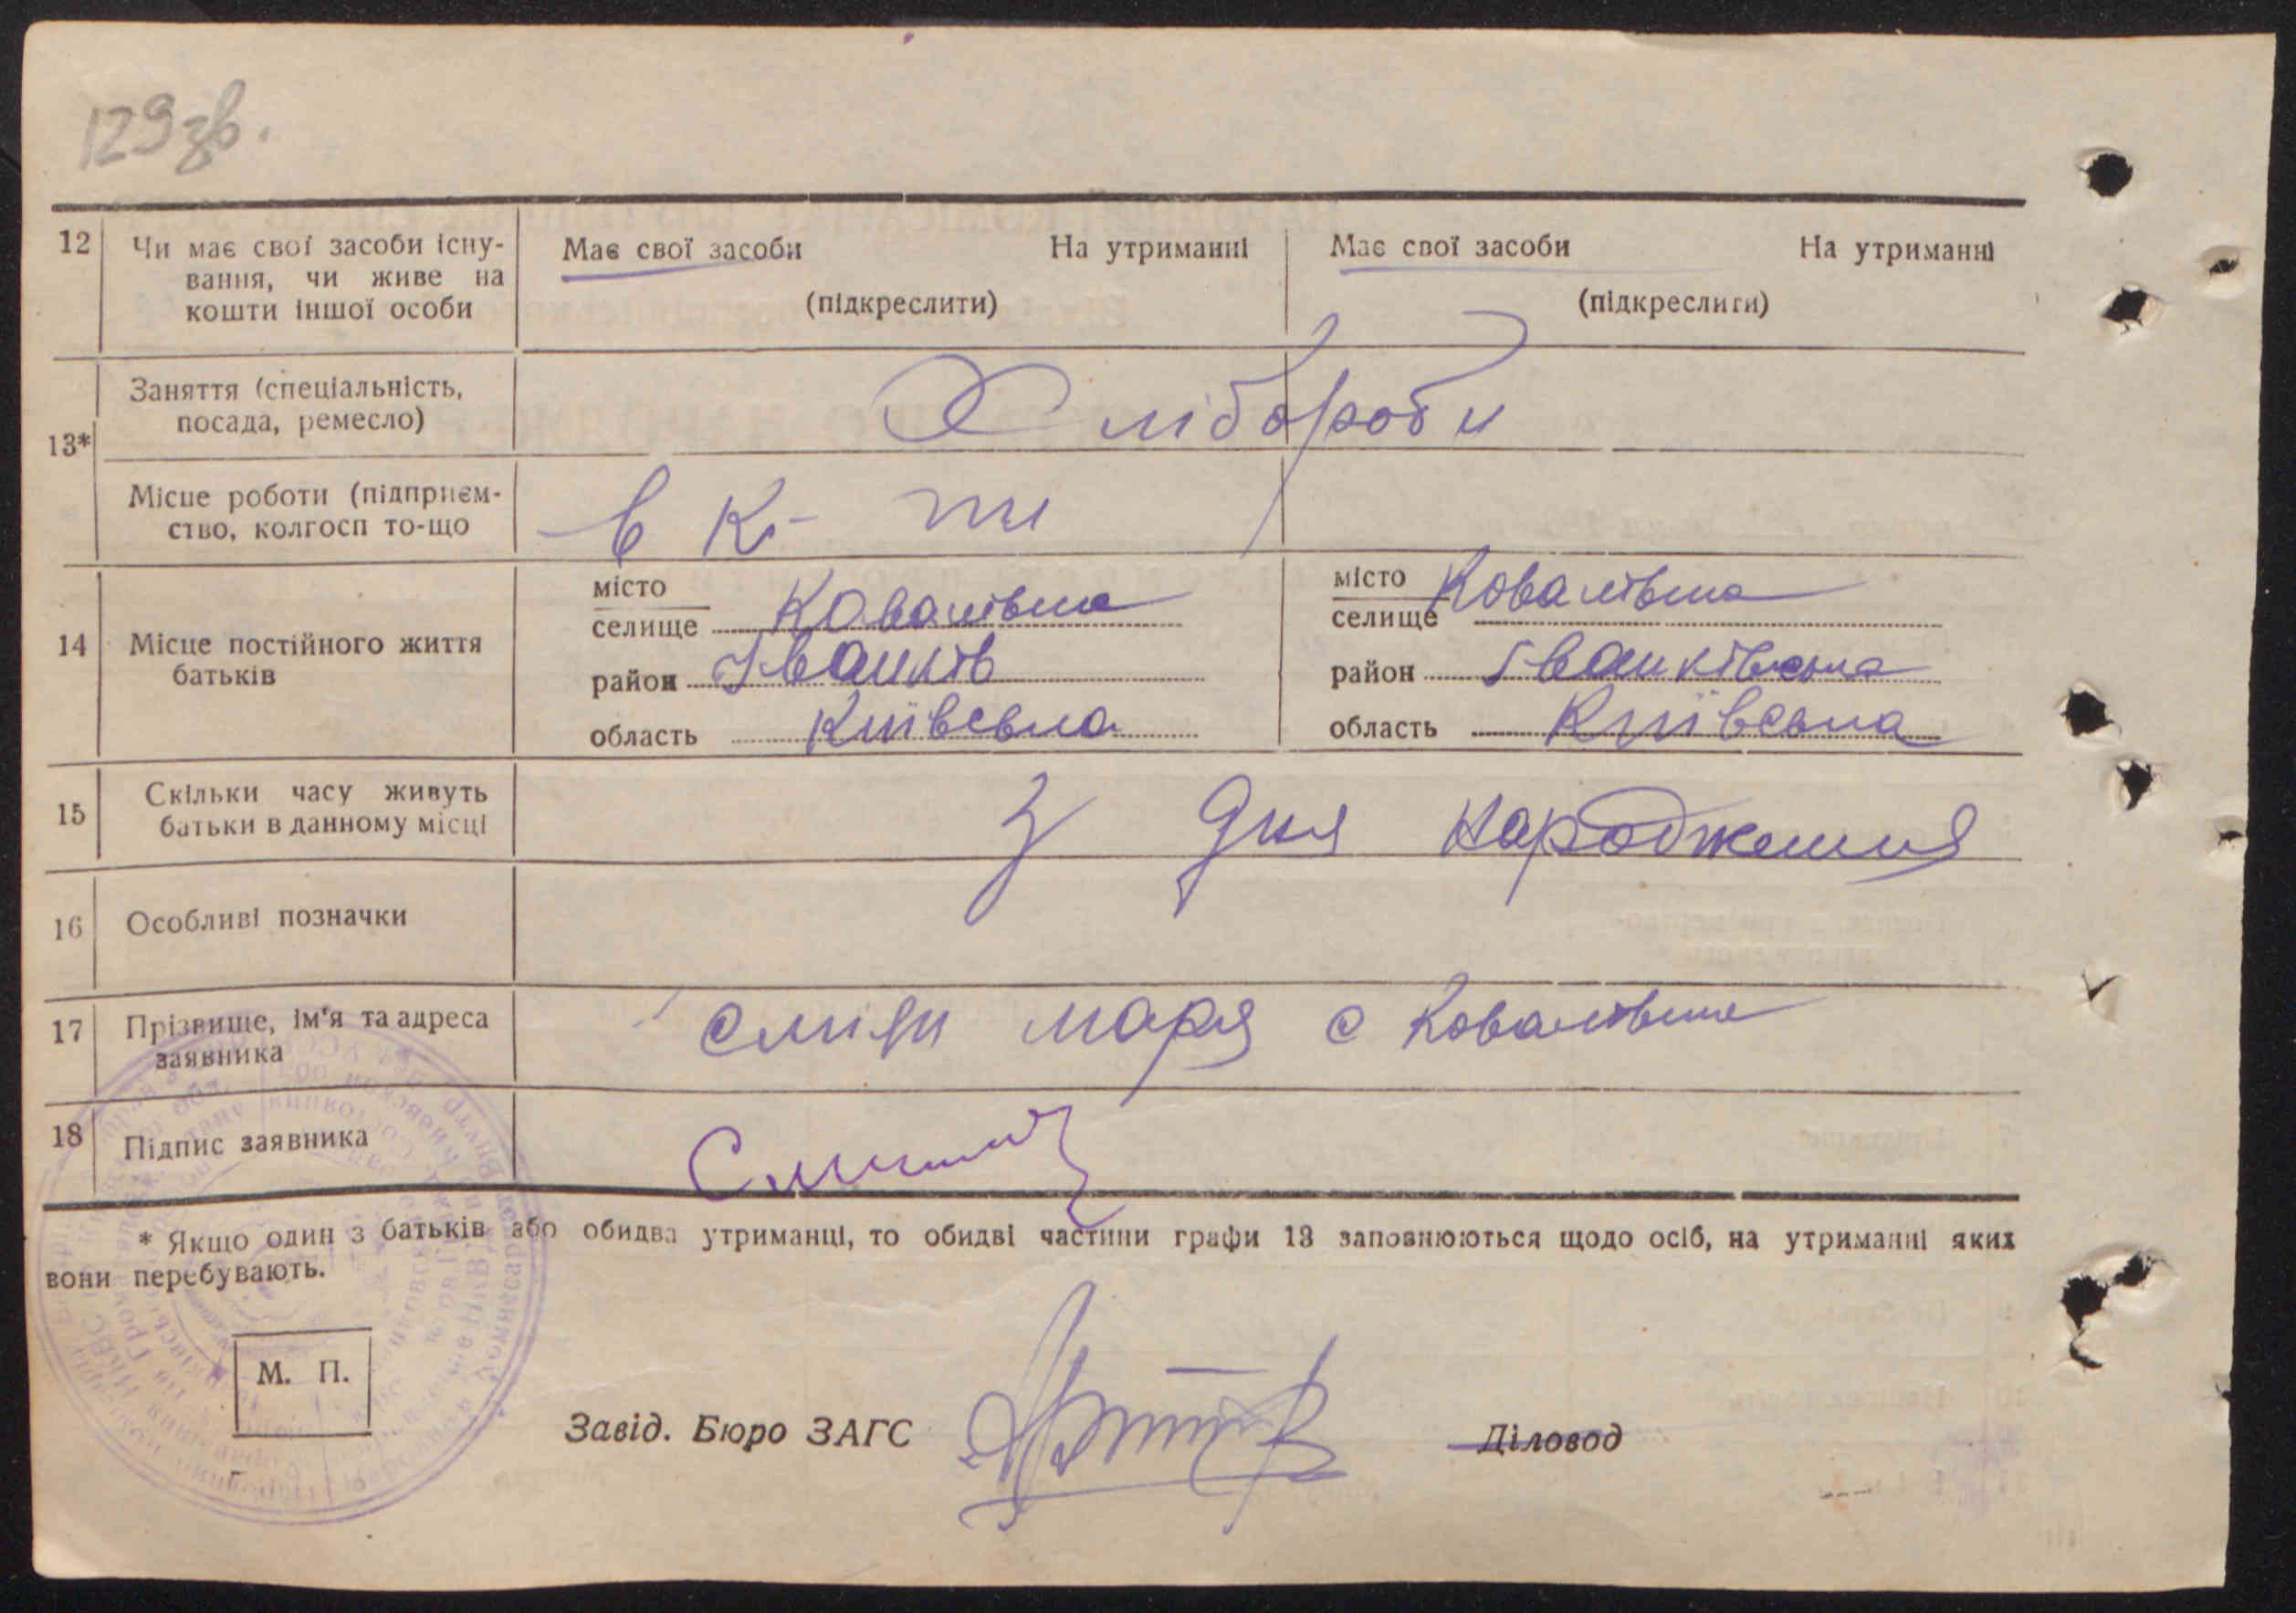 129 зв.
12 Чи має свої засоби існу- Має свої засоби На утриманні Має свої засоби На утриманні
вання, чи живе на
кошти іншої особи (підкреслити) (підкреслити)
Заняття (спеціальність, Хлібороби
посада, ремесло)
13*
Місце роботи (підприєм- в к-
ство, колгосп то-що
14 Місце постійного життя
батьків
місто
селище Ковалівка
район Іванків
область Київська
місто
селище Ковалівка
район Іванківська
область Київська
15 Скільки часу живуть З дня народження
батьки в данному місці
16 Особливі позначки
17 Прізвище, ім'я та адреса Маря с Ковалівка
заявника
18 Підпис заявника
* Якщо один з батьків або обидва утриманці, то обидві частини графи 13 заповнюються щодо осіб, на утриманні яких
вони перебувають.
М. П.
Завід. Бюро ЗАГС Діловод